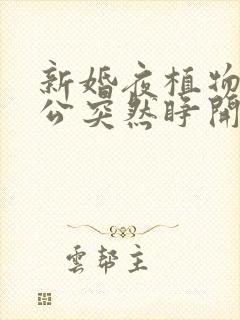 新婚夜植物
公突然睜開
雲幫主